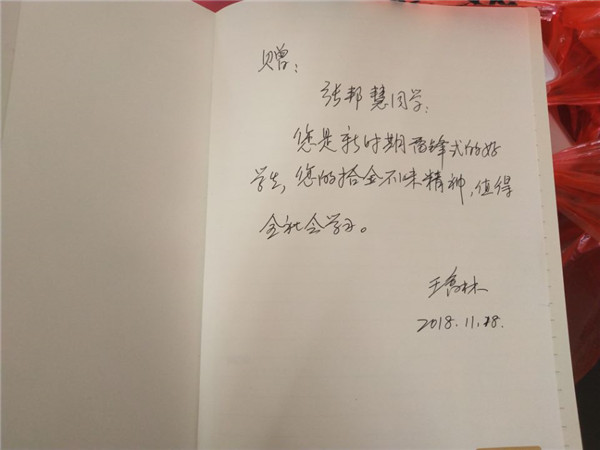 赠:
张邦慧同学:
您是新时期雷锋式的好
学生,您的拾金不昧精神,值得
全社会学习。
2018.11.18.